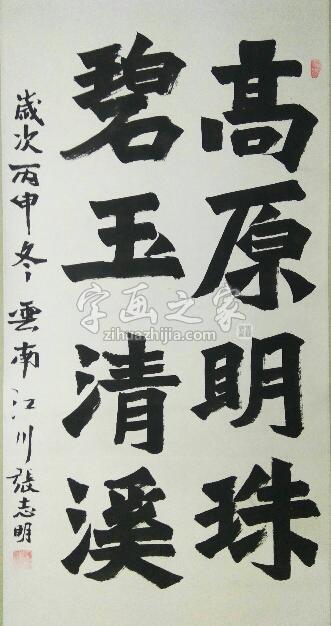 高原明珠
碧玉清溪
歲次丙申冬雲南江川張志明
字画之家
zihuazhijia.com